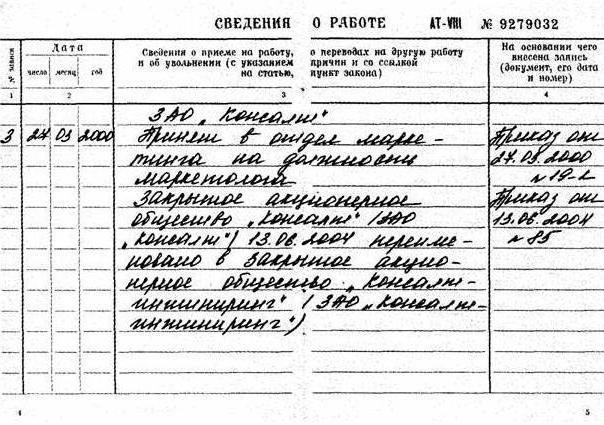 СВЕДЕНИЯ О РАБОТЕ АТ-VIII № 9279032
№ записи
Дата
число месяц год
Сведения о приеме на работу, о переводах на другую работу
и об увольнении (с указанием причин и со ссылкой
на статью, пункт закона)
На основании чего
внесена запись
(документ, его дата
и номер)
1 2 3 4
ЗАО „Консалт"
3 27 03 2000 Принят в отдел марке- Приказ от
тинга на должность 27.03.2000
маркетолога № 19-л
Закрытое акционерное Приказ от
общество „Консалт" (ЗАО 13.06.2004
„Консалт") 13.06.2004 переиме- № 85
новано в Закрытое акцио-
нерное общество „Консалт-
инжиниринг" (ЗАО „Консалт-
инжиниринг")
4 5